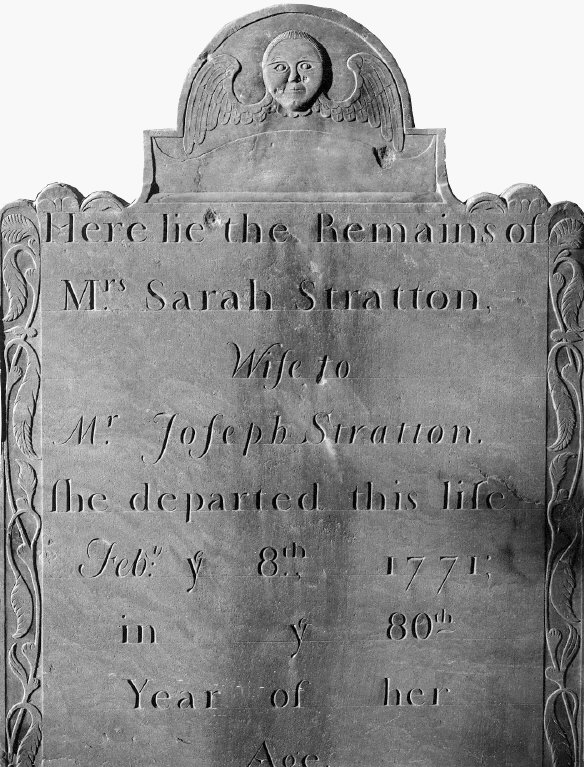 Here lie the Remains of
Mrs. Sarah Stratton,
Wife to
Mr. Joſeph Stratton.
ſhe departed this life
Feby. ye 8th., 1771;
in ye 80th
Year of her
Age.